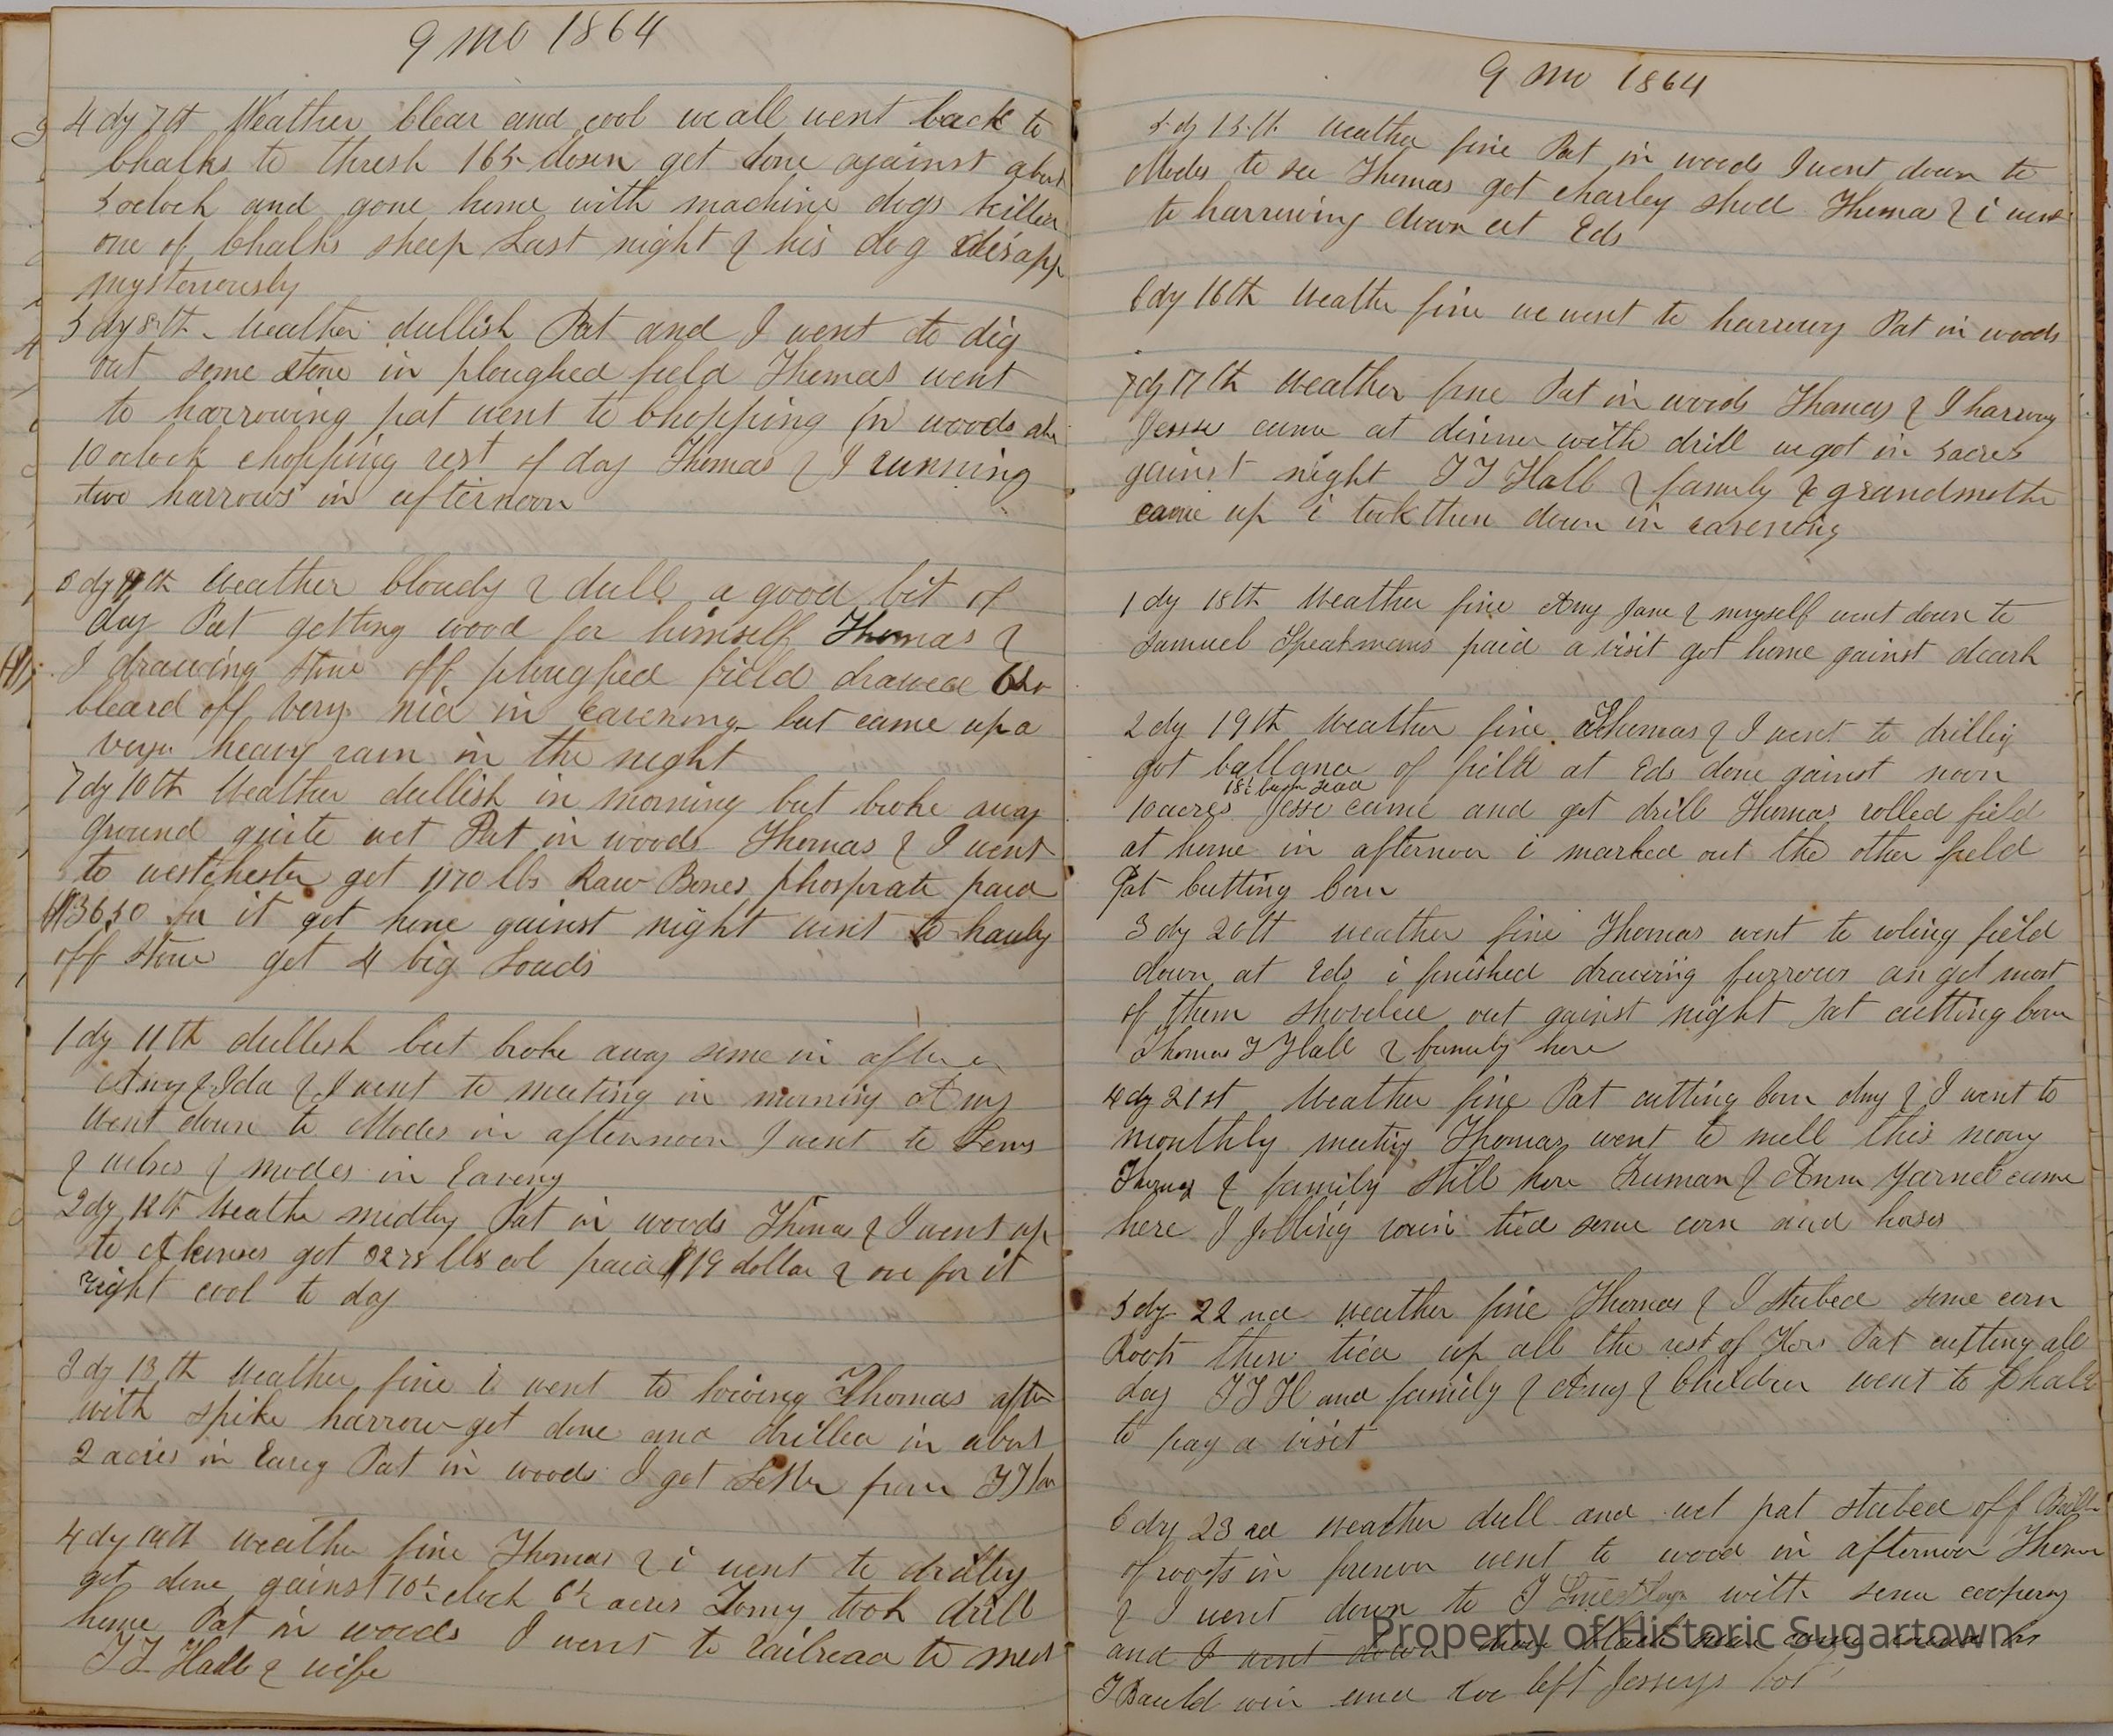 9 mo 1864
4 dy 7th Weather Clear and cool we all went back to
Chalks to thresh 165 dosen get done against abut
5 oclock and gone home with machine dogs killed
one of Chalks sheep Last night & his dog disapp
mysteriously
5 dy 8th Weather dullish Pat and I went to dig
out some stone in ploughed field Thomas went
to harrowing pat went to Chopping in woods
10 oclock chopping rest of day Thomas & I running
two harrows in afternoon
6 dy 9th Weather Cloudy & dull a good bit of
day Pat getting wood for himself Thomas &
I drawing stone off ploughed field drawed
Cleard off very nice in Eavening but came up a
very heavy rain in the night
7 dy 10th Weather dullish in morning but broke away
ground quite wet Pat in woods Thomas & I went
to westchester get 1170 lbs Raw Bones phosprate paid
$36.50 for it got home gainst night went to hauly
off stone get 4 big Loads
1 dy 11th dullish but broke away some in after
Amy & Ida & I went to meeting in morning Amy
went down to Modes in afternoon I went to Lews
& & modes in Eaveng
2 dy 12th Weathe midling Pat in woods Thomas & I went up
to got 3275 lbs col paid $19 dollar & one for it
right cool to day
3 dy 13th Weather fine i went to sowing Thomas after
with spike harrow get done and drilled in abut
2 acres in Eaveg Pat in woods I got Letter from T J
4 dy 14th weathe fine Thomas & i went to drilling
get done gainst 10½ clock 6½ acres Tomy took drill
home Pat in woods I went to railroad to meet
T J Hall & wife
9 mo 1864
5 dy 15th Weather fine Pat in woods I went down to
Modes to see Thomas got charley shod Thomas & i went
to harrowing down at Eds
6 dy 16th Weathe fine we went to harrowy Pat in woods
7 dy 17th Weather fine Pat in woods Thomas & I harrowy
Jesse came at dinner with drill we got in 5 acres
gainst night T J Hall & family & grandmothe
came up i took them down in eavening
1 dy 18th Weather fine Amy Jane & myself went down to
Samuel Speakmans paid a visit got home gainst deark
2 dy 19th Weather fine Thomas & I went to drillig
got ballance of field at Eds done gainst noon
18½ bush seed
10 acres Jesse came and get drill Thomas rolled field
at home in afternoon i marked out the other field
Pat Cutting Corn
3 dy 20th weather fine Thomas went to roling field
down at Eds i finished drawing furrows an get most
of them shoveled out gainst night Pat cutting Corn
Thomas J Hall & family here
4 dy 21st Weather fine Pat cutting Corn Amy & I went to
monthly meeting Thomas went to mill this morny
Thomas & family still here Truman & Anna Yarnel came
here I jobbing roun tied some corn and horses
5 dy 22nd weather fine Thomas & I stubed some corn
Roots then tied up all the rest of Pat cutting all
day T J H and family & Amy & Children went to Chalk
to pay a visit
6 dy 23rd weather dull and wet pat stubed off
of roots in forenon went to wood in afternon Thomas
& I went down to J with some coopering
and I went down
J Bauld and we left Jesseys
Property of Historic Sugartown